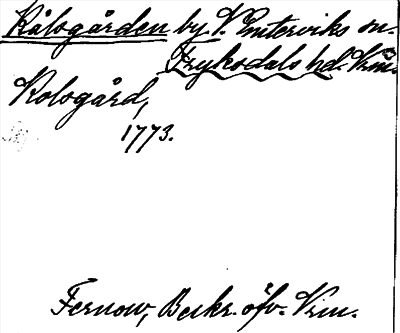 Kålsgården by V. Emterviks sn.
Fryksdals hd. Vrm.
Kolsgård,
1773.
Fernow, Beskr. öfv. Vrm.